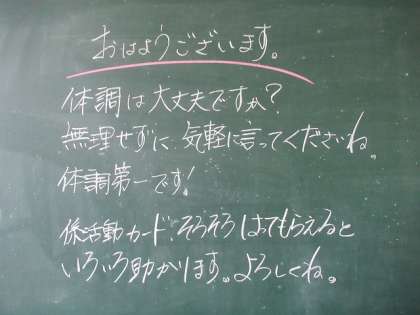 おはようございます。
体調は大丈夫ですか?
無理せずに、気軽に言ってくださいね。
体調第一です!
係活動カード、そろそろはってもらえると
いろいろ助かります。よろしくね。